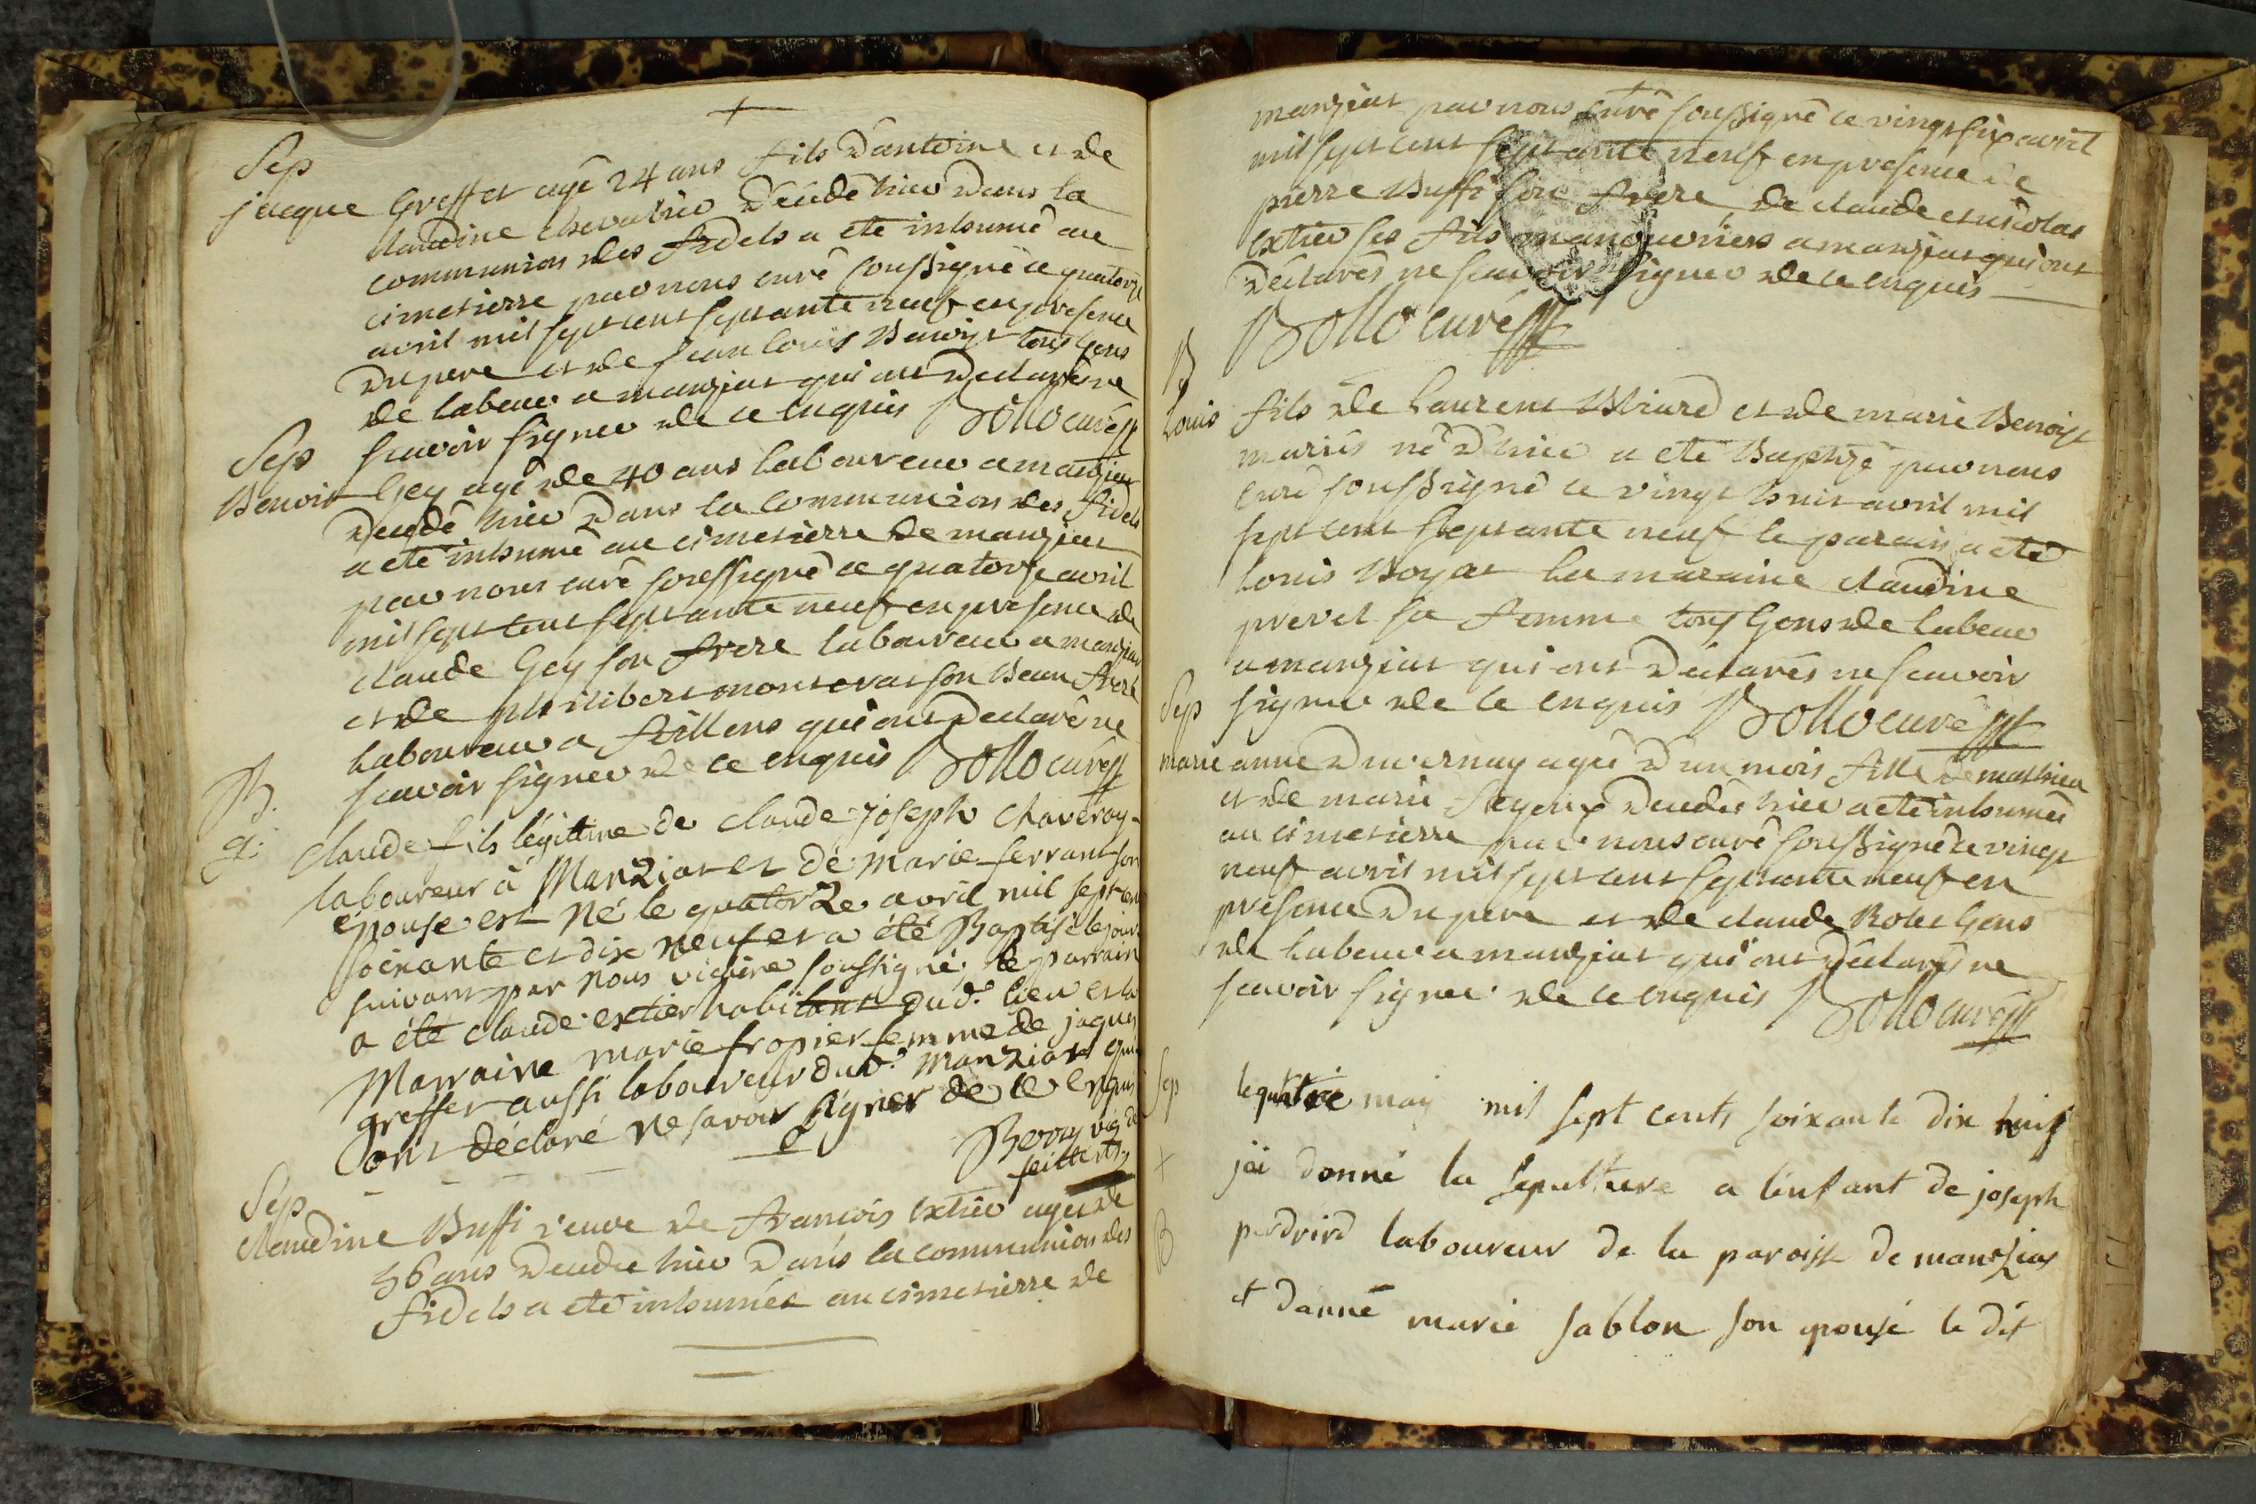 Sep
jacque Greffet agé 24 ans fils dantoine et de
claudine chevalier décédé hier dans la
communion des fidels a ete inhumé au
cimetierre par nous curé soussigné ce quatorze
avril mil sept cent septante neuf en presence
du pere et de jean louis Benoist tous gens
de labeur a manziat qui ont declaré ne
scavoir signer de ce enquis Bollo curé
Sep
Benoit Gey agé de 40 ans laboureur a manziat
decedé hier dans la communion des fidels
a ete inhumé au cimetierre de manziat
par nous curé soussigné ce quatorze avril
mil sept cent septante neuf en presence de
claude Gey son frere laboureur a manziat
et de philibert monterat son beau frere
laboureur a fillens qui ont declaré ne
scavoir signer de ce enquis Bollo curé
B.
g. Claude fils légitime de claude joseph Chaveroy
laboureur à Manziat et de Marie ferrant son
épouse est Né le quatorze avril mil sept cent
soixante et dix neuf et a été Baptisé le jour
suivant par nous vicaire soussigné. le parrain
a été claude extier habitant dud. lieu et la
Marraine marie fropier femme de jaques
greffet aussi laboureur dud. Manziat qui
ont déclaré ne savoir signer de ce enquis
Berry vic de
feillens
Sep
claudine Buffi veuve de francois Extier agée de
56 ans decedée hier dans la communion des
fidels a ete inhumée au cimetierre de
manziat par nous curé soussigné ce vingt six avril
mil sept cent septante neuf en presence de
pierre Buffi son frere de claude et nicolas
Extier ses fils manouvriers a manziat qui ont
declarés ne scavoir signer de ce enquis
Bollo curé
B
Louis fils de Laurent Buiard et de marie Benoist
mariés né d'hier a ete Baptisé par nous
curé soussigné ce vingt huit avril mil
sept cent septante neuf le parain a ete
Louis Boyat la maraine claudine
prevel sa femme tous gens de labeur
a manziat qui ont declarés ne scavoir
signer de ce enquis Bollo curé
Sep
marie anne Duvernay agé d'un mois fille de mathieu
et de marie feyeux decedée hier a ete inhumée
au cimetierre par nous curé soussigné ce vingt
neuf avril mil sept cent septante neuf en
presence du pere et de claude Robet gens
de labeur a manziat qui ont declaré ne
scavoir signer de ce enquis Bollo curé
Sep le quatre may mil sept cents soixante dix neuf
+ jai donné la sepulture a lenfant de joseph
B perdrix laboureur de la paroisse de manziat
et danne marie sablon son epouse le dit